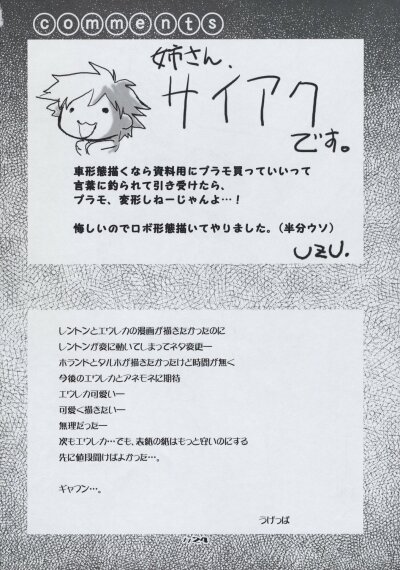 comments
姉さん、
サイアク
です。
車形態描くなら資料用にプラモ買っていいって
言葉に釣られて引き受けたら、
プラモ、変形しねーじゃんよ…！
悔しいのでロボ形態描いてやりました。（半分ウソ）
UZU.
レントンとエウレカの漫画が描きたかったのに
レントンが変に動いてしまってネタ変更ー
ホランドとタルホが描きたかったけど時間が無く
今後のエウレカとアネモネに期待
エウレカ可愛いー
可愛く描きたいー
無理だったー
次もエウレカ…でも、表紙の紙はもっと安いのにする
先に値段聞けばよかった…。
ギャフン…。
うげっぱ
24